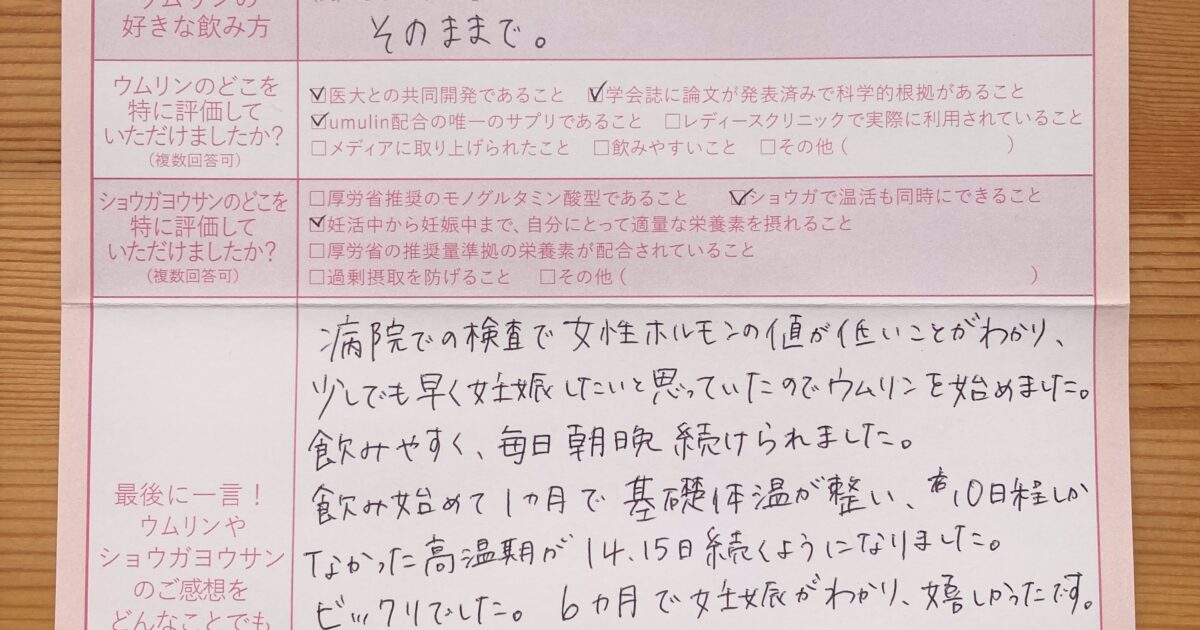 ウムリンの
好きな飲み方
そのままで。
ウムリンのどこを
特に評価して
いただけましたか?
(複数回答可)
☑医大との共同開発であること ☑学会誌に論文が発表済みで科学的根拠があること
☑umulin配合の唯一のサプリであること □レディースクリニックで実際に利用されていること
□メディアに取り上げられたこと □飲みやすいこと □その他 ( )
ショウガヨウサンのどこを
特に評価して
いただけましたか?
(複数回答可)
□厚労省推奨のモノグルタミン酸型であること ☑ショウガで温活も同時にできること
☑妊活中から妊娠中まで、自分にとって適量な栄養素を摂れること
□厚労省の推奨量準拠の栄養素が配合されていること
□過剰摂取を防げること □その他 ( )
最後に一言!
ウムリンや
ショウガヨウサン
のご感想を
どんなことでも
病院での検査で女性ホルモンの値が低いことがわかり、
少しでも早く妊娠したいと思っていたのでウムリンを始めました。
飲みやすく、毎日朝晩続けられました。
飲み始めて1ヵ月で基礎体温が整い、10日程しか
なかった高温期が14、15日続くようになりました。
ビックリでした。6ヵ月で妊娠がわかり、嬉しかったです。